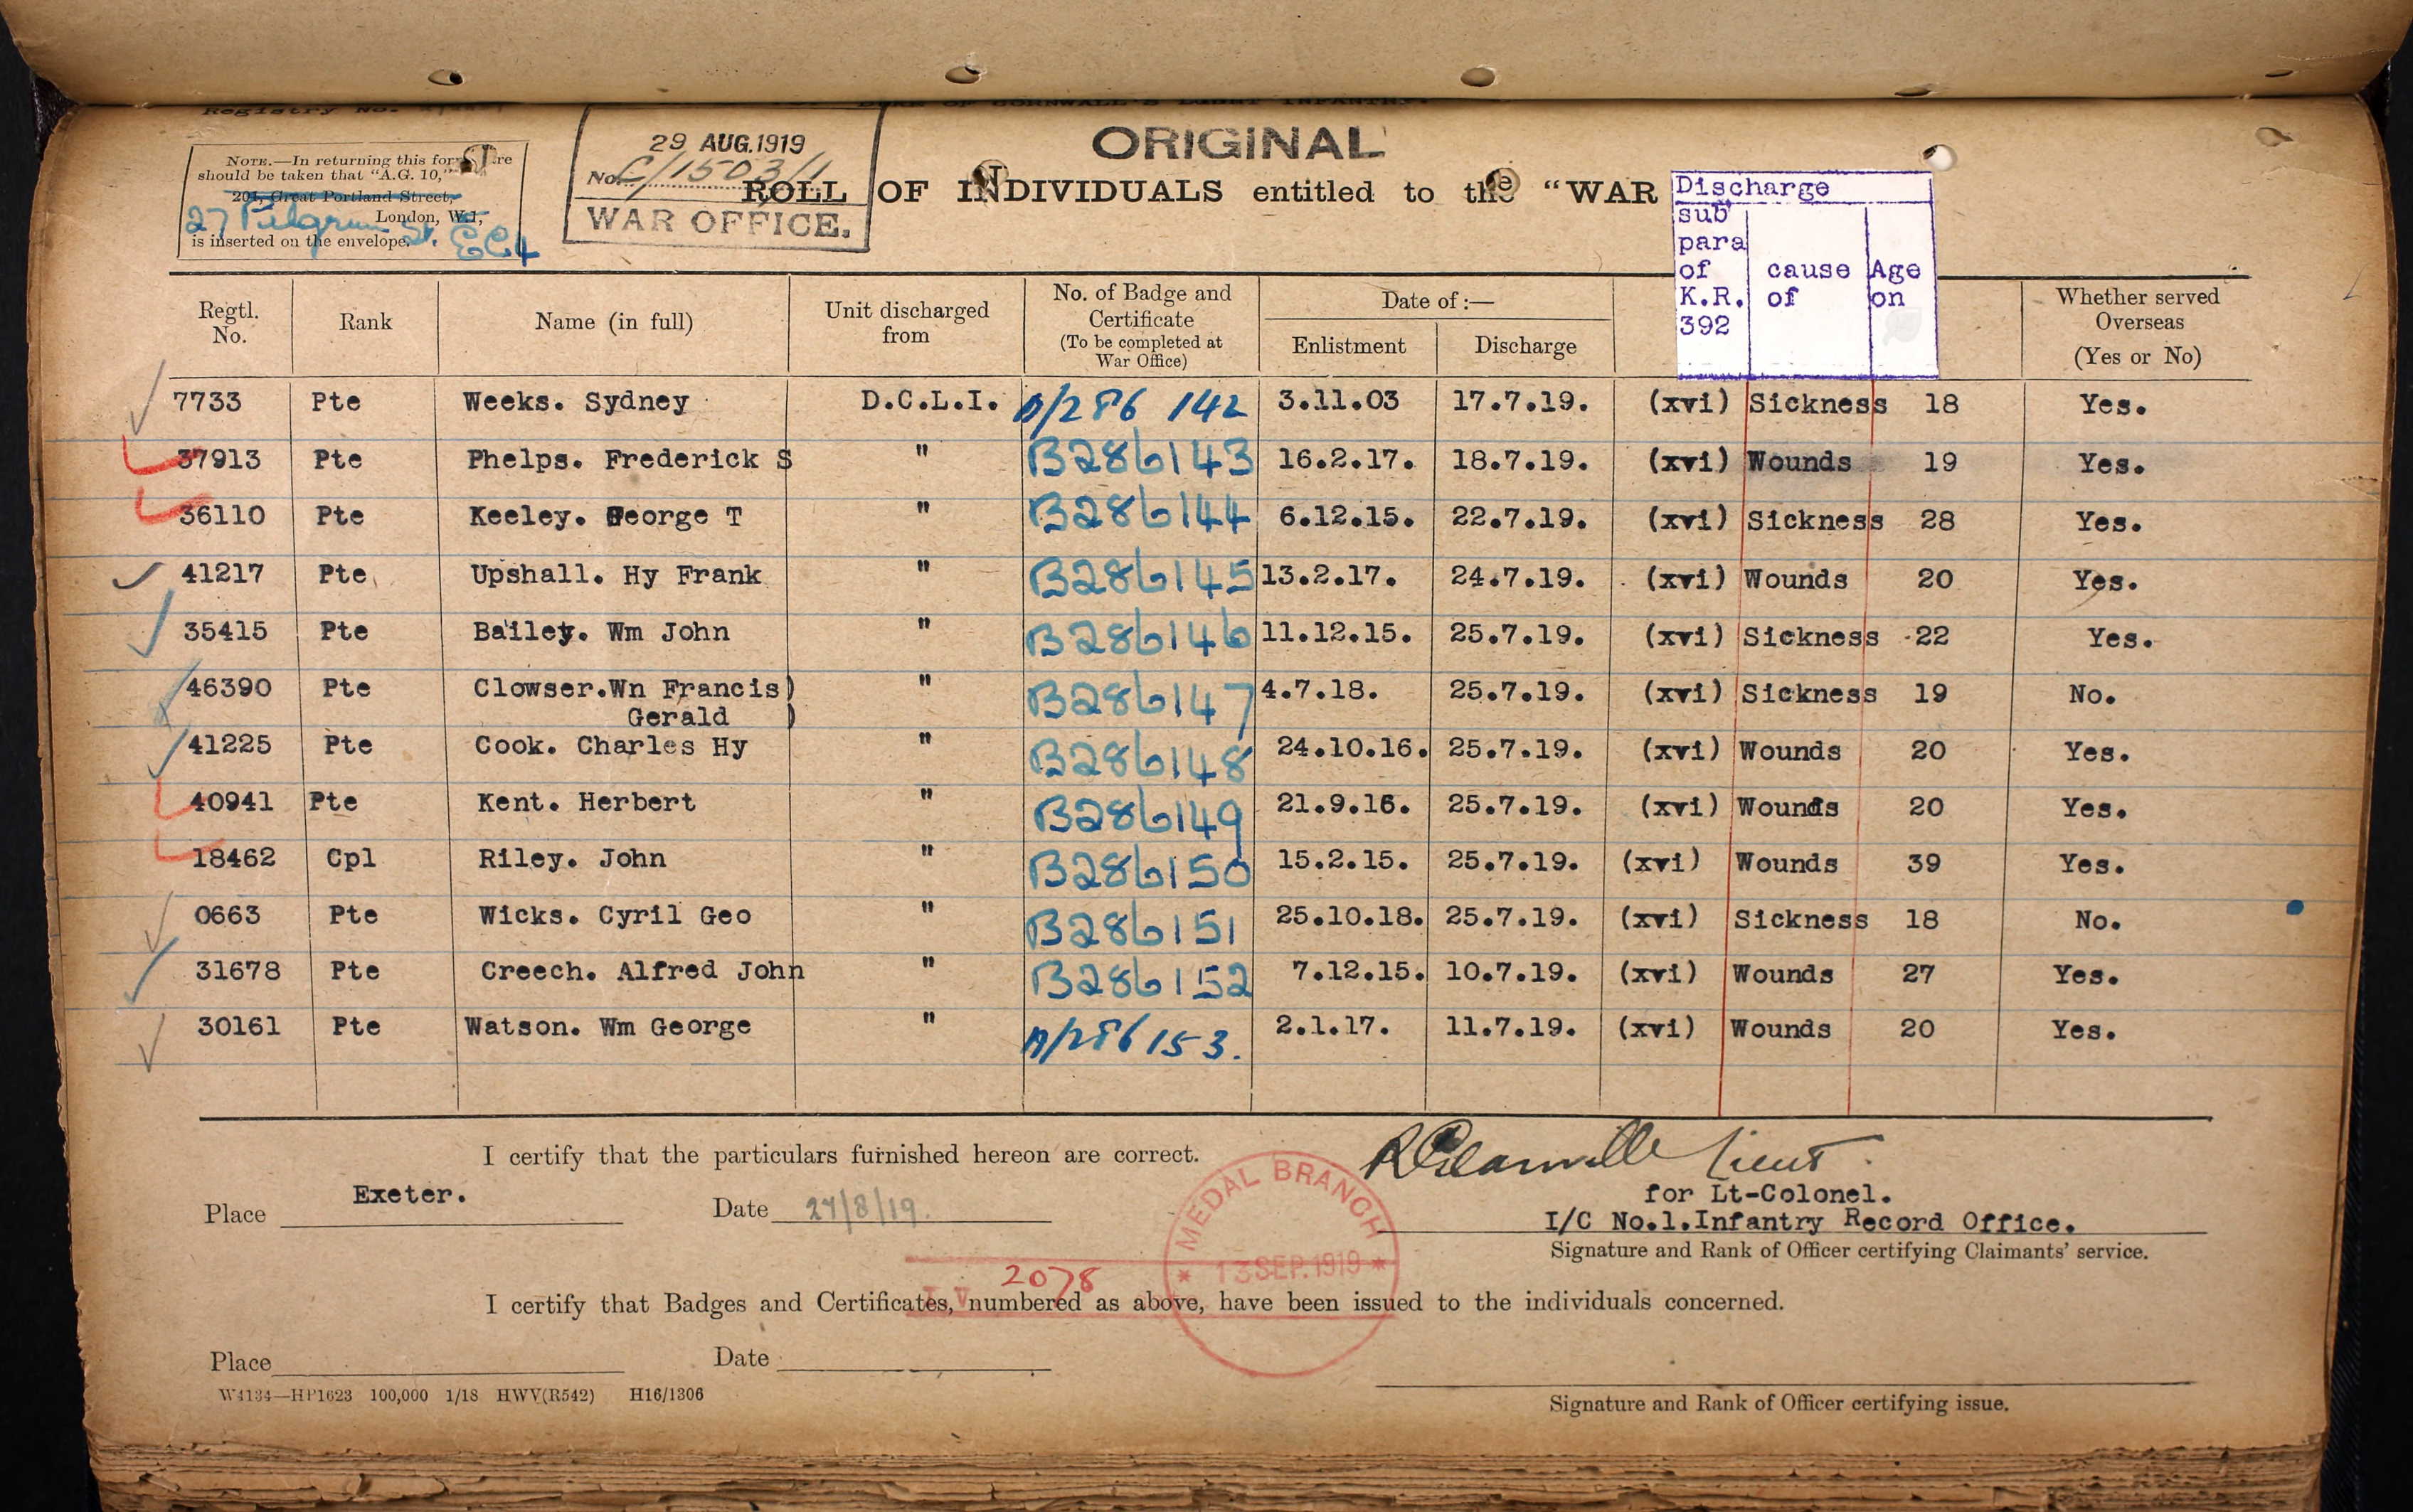 Registry No.
DUKE OF CORNWALL'S LIGHT INFANTRY.
NOTE.—In returning this form
should be taken that "A.G. 10,"
201, Great Portland Street,
27 Pilgrim St. London, W.1,
is inserted on the envelope. EC4
29 AUG.1919
No. C/1503/1
WAR OFFICE.
ORIGINAL
ROLL OF INDIVIDUALS entitled to the "WAR
Discharge
sub para of K.R. 392 cause of Age on
Regtl. No. Rank Name (in full) Unit discharged from No. of Badge and Certificate (To be completed at War Office) Date of:— Enlistment Discharge Whether served Overseas (Yes or No)
7733 Pte Weeks. Sydney D.C.L.I. B/286 142 3.11.03 17.7.19. (xvi) Sickness 18 Yes.
37913 Pte Phelps. Frederick S " B286143 16.2.17. 18.7.19. (xvi) Wounds 19 Yes.
36110 Pte Keeley. George T " B286144 6.12.15. 22.7.19. (xvi) Sickness 28 Yes.
41217 Pte Upshall. Hy Frank " B286145 13.2.17. 24.7.19. (xvi) Wounds 20 Yes.
35415 Pte Bailey. Wm John " B286146 11.12.15. 25.7.19. (xvi) Sickness 22 Yes.
46390 Pte Clowser.Wn Francis) " B286147 4.7.18. 25.7.19. (xvi) Sickness 19 No.
Gerald )
41225 Pte Cook. Charles Hy " B286148 24.10.16. 25.7.19. (xvi) Wounds 20 Yes.
40941 Pte Kent. Herbert " B286149 21.9.16. 25.7.19. (xvi) Wounds 20 Yes.
18462 Cpl Riley. John " B286150 15.2.15. 25.7.19. (xvi) Wounds 39 Yes.
0663 Pte Wicks. Cyril Geo " B286151 25.10.18. 25.7.19. (xvi) Sickness 18 No.
31678 Pte Creech. Alfred John " B286152 7.12.15. 10.7.19. (xvi) Wounds 27 Yes.
30161 Pte Watson. Wm George " B/286153. 2.1.17. 11.7.19. (xvi) Wounds 20 Yes.
I certify that the particulars furnished hereon are correct.
Lieut.
for Lt-Colonel.
Place Exeter. Date 27/8/19.
I/C No.1.Infantry Record Office.
Signature and Rank of Officer certifying Claimants' service.
MEDAL BRANCH
13 SEP.1919
2078
I certify that Badges and Certificates, numbered as above, have been issued to the individuals concerned.
Place Date
W4134—HP1623 100,000 1/18 HWV(R542) H16/1306
Signature and Rank of Officer certifying issue.